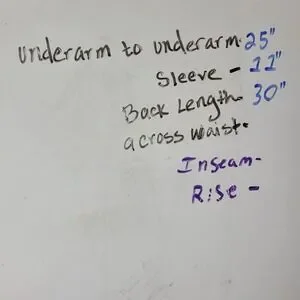 underarm to underarm. 25"
Sleeve - 11"
Back Length. 30"
across waist.
Inseam-
Rise -